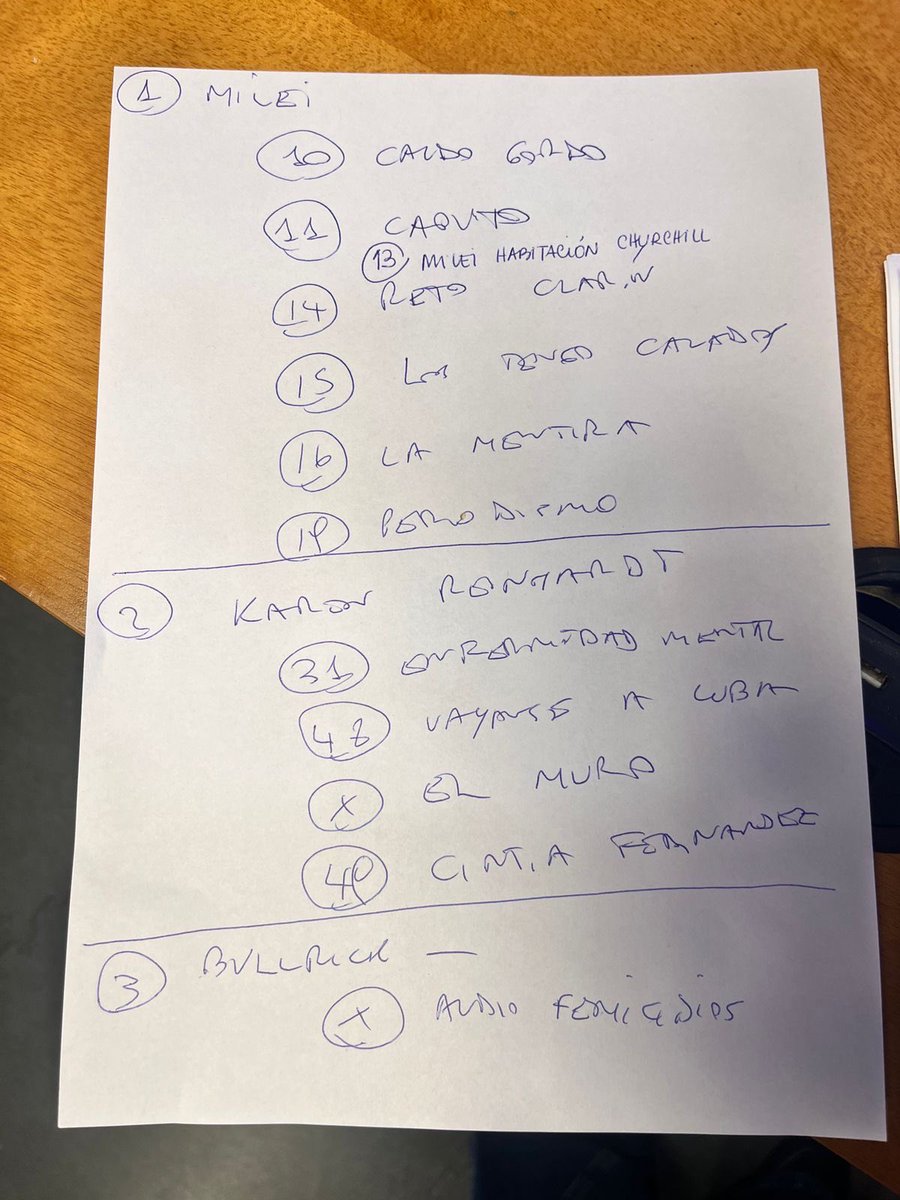 1 MILEI
10 CALDO GORDO
11 CAQUITO
13 MILEI HABITACIÓN CHURCHILL
14 RETO CLARIN
15 LOS TENGO CALADOS
16 LA MENTIRA
19 PERIODISMO
2 KAREN REICHARDT
31 ENFERMEDAD MENTAL
48 VAYANSE A CUBA
X EL MURO
49 CINTIA FERNANDEZ
3 BULLRICH —
X AUDIO FEMICIDIOS